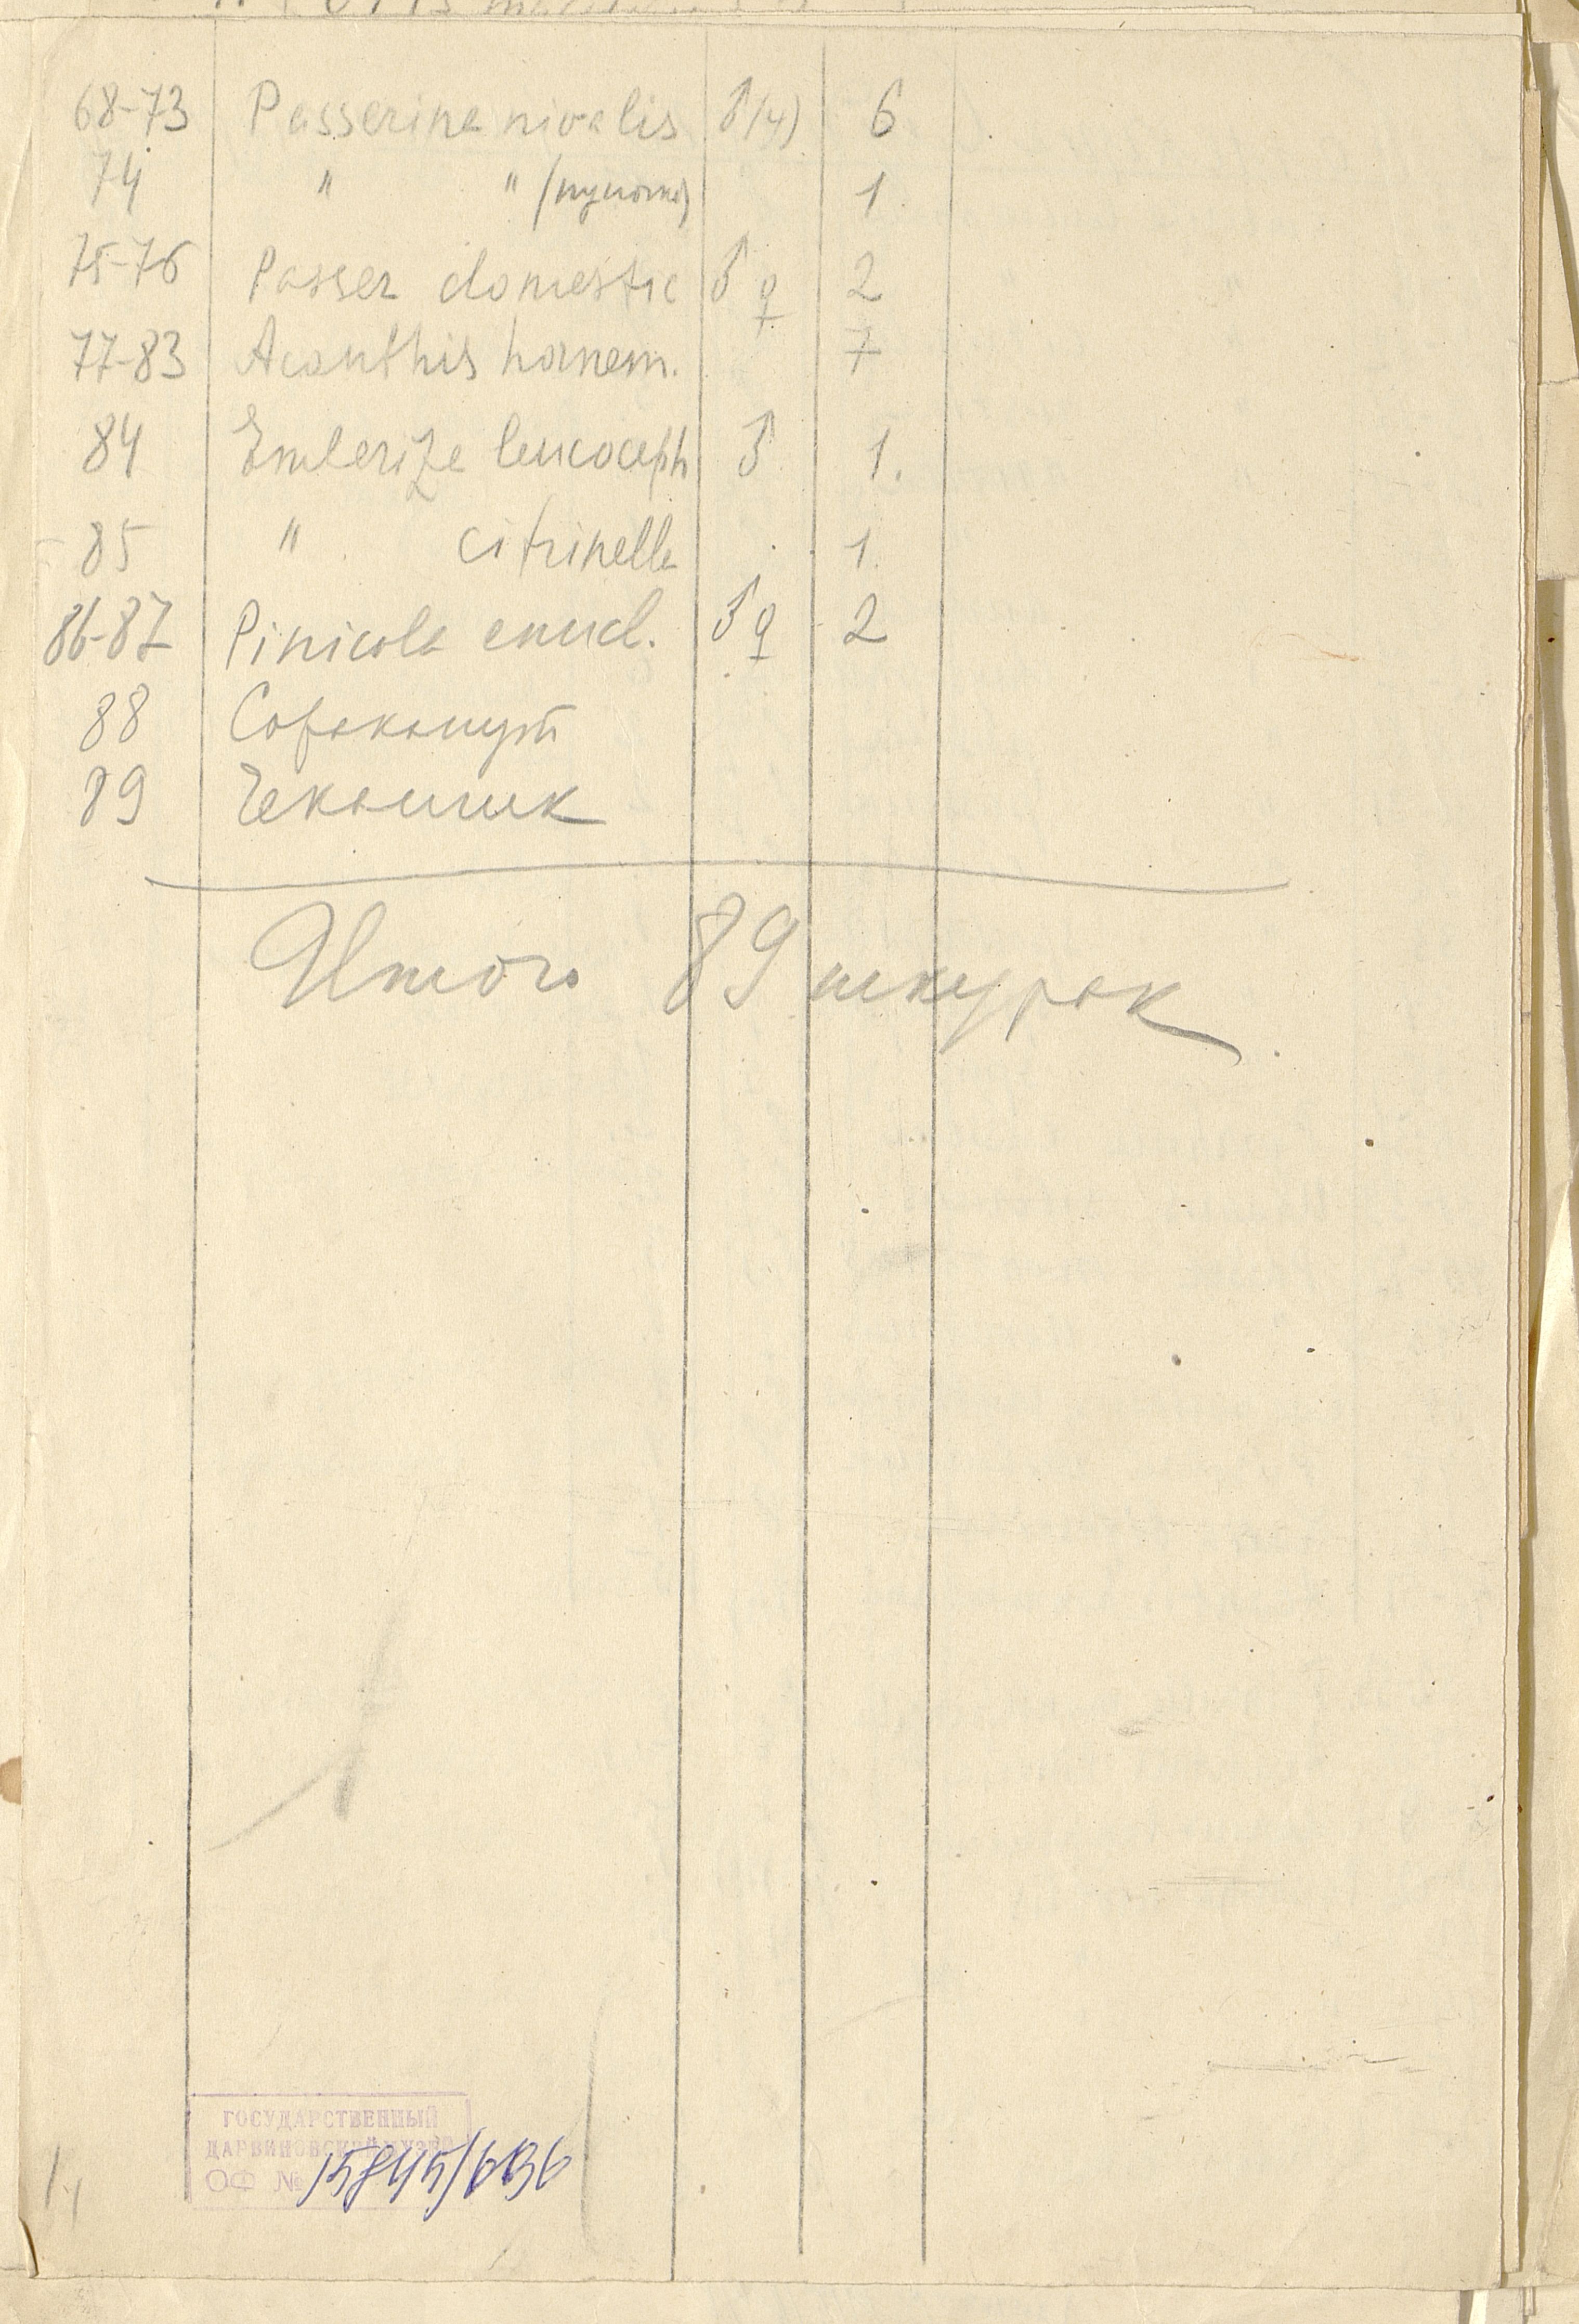 68-73 Passerina nivalis ♂(4) 6
74 " " 1.
75-76 Passer domestic ♂ ♀ 2
77-83 Acanthis hornem. 7
84 Emberiza leucoceph ♂ 1.
85 " citrinella 1.
86-87 Pinicola enucl. ♂ ♀ 2
88 Сорокопут
89 Чекащик
Итого 89 шкурок
ГОСУДАРСТВЕННЫЙ
ДАРВИНОВСКИЙ МУЗЕЙ
ОФ № 15845/636